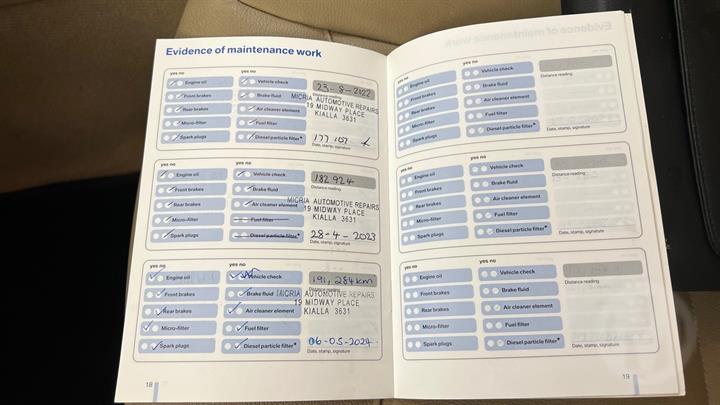 Evidence of maintenance work
yes no
yes no
Engine oil
Vehicle check
23-8-2022
Distance reading
Front brakes
Brake fluid
MICRIA AUTOMOTIVE REPAIRS
Rear brakes
Air cleaner element
19 MIDWAY PLACE
KIALLA 3631
Micro-filter
Fuel filter
Spark plugs
Diesel particle filter*
177 107
Date, stamp, signature
yes no
yes no
Engine oil
Vehicle check
182 924
Front brakes
Brake fluid
MICRIA AUTOMOTIVE REPAIRS
Rear brakes
Air cleaner element
19 MIDWAY PLACE
KIALLA 3631
Micro-filter
Fuel filter
Spark plugs
Diesel particle filter*
28-4-2023
Date, stamp, signature
yes no
yes no
Engine oil
Vehicle check
191,284km
Distance reading
Front brakes
Brake fluid
MICRIA AUTOMOTIVE REPAIRS
Rear brakes
Air cleaner element
19 MIDWAY PLACE
KIALLA 3631
Micro-filter
Fuel filter
Spark plugs
Diesel particle filter*
06-05-2024
Date, stamp, signature
18
yes no
yes no
Engine oil
Vehicle check
Distance reading
Front brakes
Brake fluid
Rear brakes
Air cleaner element
Micro-filter
Fuel filter
Spark plugs
Diesel particle filter*
Date, stamp, signature
yes no
yes no
Engine oil
Vehicle check
Distance reading
Front brakes
Brake fluid
Rear brakes
Air cleaner element
Micro-filter
Fuel filter
Spark plugs
Diesel particle filter*
Date, stamp, signature
yes no
yes no
Engine oil
Vehicle check
Distance reading
Front brakes
Brake fluid
Rear brakes
Air cleaner element
Micro-filter
Fuel filter
Spark plugs
Diesel particle filter*
Date, stamp, signature
19